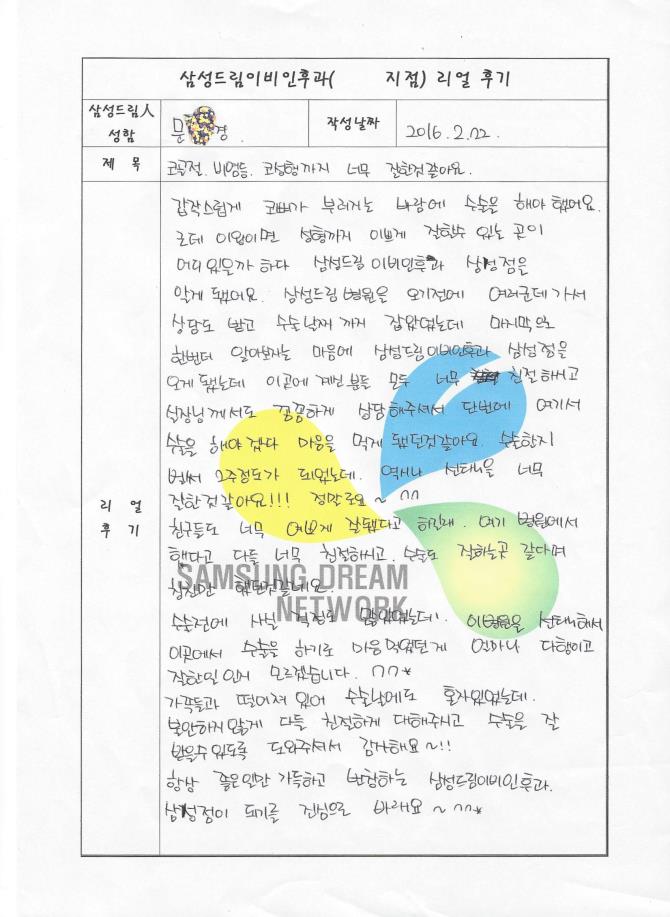 삼성드림이비인후과( 지점) 리얼 후기
삼성드림人 성함
문 경.
작성날짜
2016. 2. 22.
제 목
코골절, 비염등, 코성형까지 너무 잘한것 같아요.
리 얼 후 기
갑작스럽게 코뼈가 부러지는 바람에 수술을 해야 했어요.
근데 이왕이면 성형까지 이쁘게 잘할수 있는 곳이
어디있을까 하다 삼성드림이비인후과 삼성점을
알게 됐어요. 삼성드림 병원을 오기전에 여러군데 가서
상담도 받고 수술날짜 까지 잡았었는데 마지막으로
한번더 알아보자는 마음에 삼성드림이비인후과 삼성점을
오게 됐는데 이곳에 계신분들 모두 너무 친절하시고
실장님께서도 꼼꼼하게 상담해주셔서 단번에 여기서
수술을 해야겠다 마음을 먹게 됐던것같아요. 수술한지
벌써 2주정도가 되었는데. 역시나 선택을 너무
잘한것 같아요!!! 정말로요 ~ ^^
친구들도 너무 예쁘게 잘됐다고 하길래. 여기 병원에서
했다고 다들 너무 친절하시고. 수술도 잘하는곳 같다며
칭찬만 했던것같네요.
SAMSUNG DREAM
NETWORK
수술전에 사실 걱정도 많았었는데. 이병원을 선택해서
이곳에서 수술을 하기로 마음먹었던게 얼마나 다행이고
잘한일 인지 모르겠습니다. ^^*
가족들과 떨어져 있어 수술날에도 혼자있었는데.
불안하지 않게 다들 친절하게 대해주시고 수술을 잘
받을수 있도록 도와주셔서 감사해요~!!
항상 좋은일만 가득하고 번창하는 삼성드림이비인후과.
삼성점이 되기를 진심으로 바래요 ~ ^^*